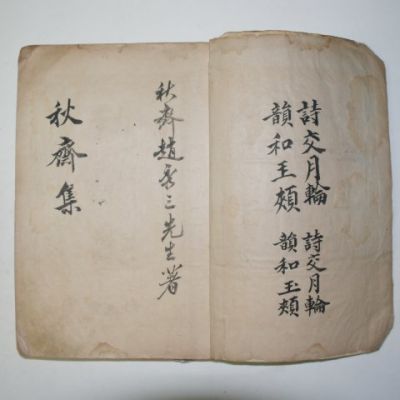 詩交月輪 詩交月輪
韻和王頰 韻和玉頰
秋齋趙秀三先生著
秋齋集